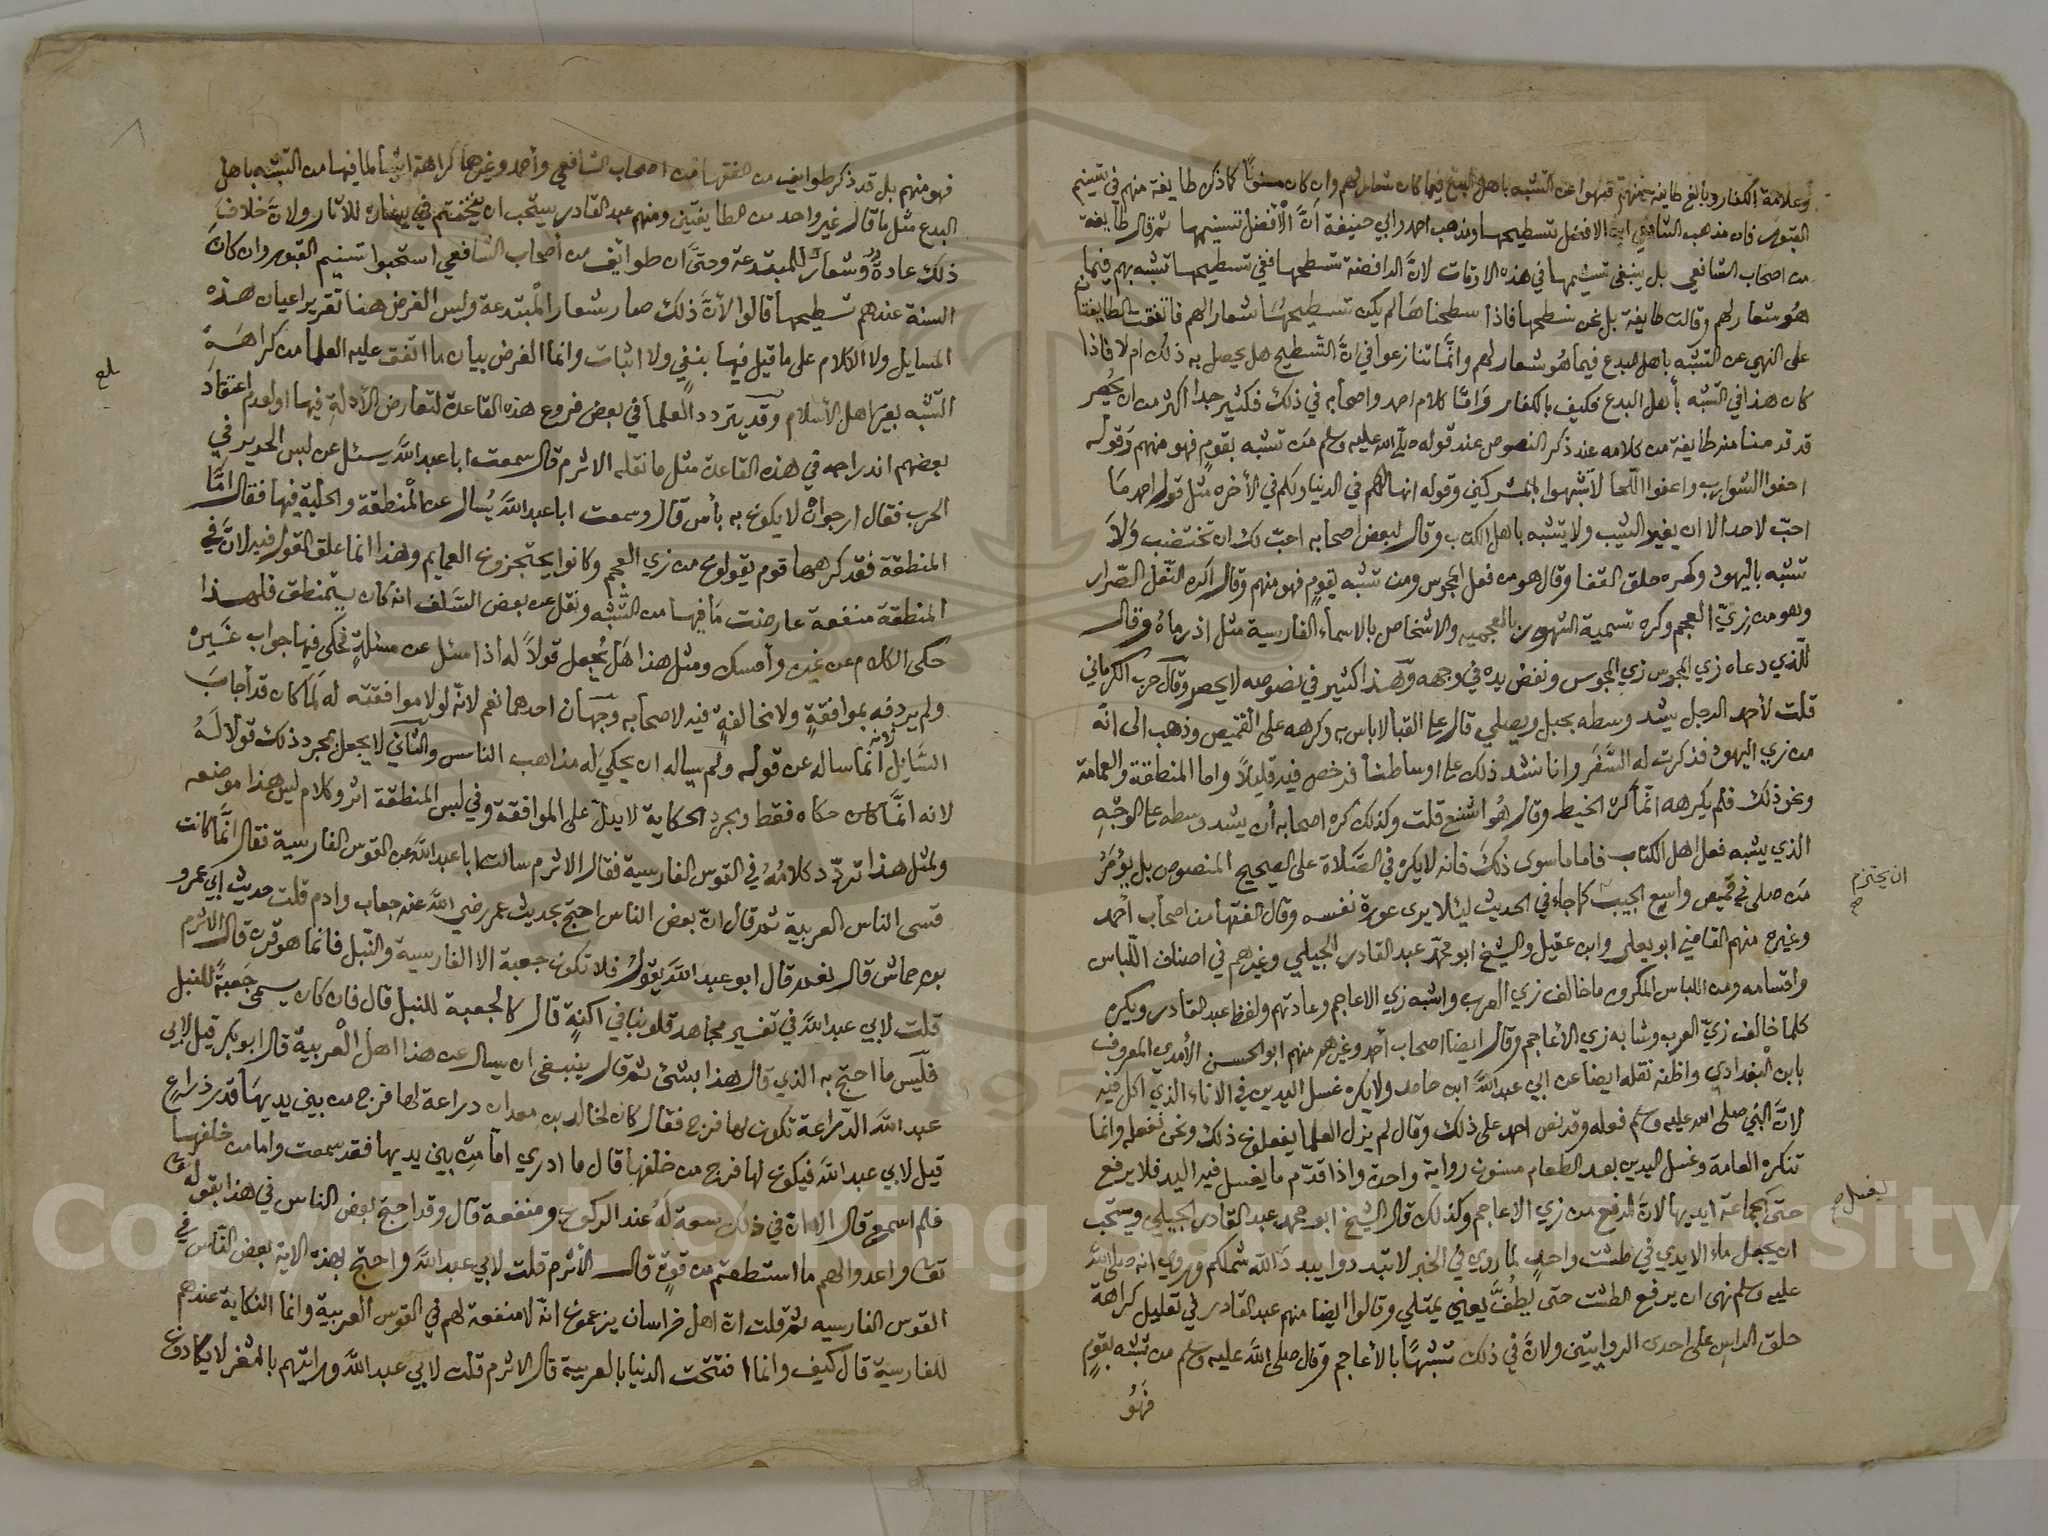 وعلامة الكفار وبالغ طايفة منهم فنهوا عن التشبه باهل البدع فيما كان شعارا لهم وان كان مسنونا كما ذكره طايفة منهم في تسنيم
القبور فان مذهب الشافعي ان الافضل تسطيحها ومذهب احمد وابي حنيفة ان الأفضل تسنيمها ثم قال طايفة
من اصحاب الشافعي بل ينبغي تسنيمها في هذه الاوقات لانّ الرافضة تسطحها ففي تسطيحها تشبه بهم فيما
هُو شعار لهم وقالت طايفة بل نحن نسطحها فاذا سطحناها لم يكن تسطيحها شعارا لهم فاتفقت الطايفتا
على النهي عن التشبه باهل البدع فيما هُو شعار لهم وانَّما تنازعوا في انّ التسطيح هل يحصل به ذلك ام لا فاذا
كان هذا في التشبه بأهل البدع فكيف بالكفار وَامَّا كلام احمد واصحابه في ذلك فكثير جدا اكثر من ان يُحصر
قد قدمنا منه طايفة من كلامه عند ذكر النصوص عند قوله صلى الله عليه وسلم من تشبه بقومٍ فهو منهم وَقوله
احفوا الشوارب واعفوا اللّحا لا تشبهوا بالمشركين وقوله انها لهم في الدنيا ولكم في الأخره مثل قول احمد مَا
احبّ لاحد الا ان يغير الشيب ولا يتشبه باهل الكتاب وقال لبعض اصحابه احبّ لك ان تختضب وَلا
تشبه باليهود وكره حلق القفا وقال هو من فعل المجوس ومن تشبه بقومٍ فهو منهم وقال اكره النّعل الصّرار
وهو من زيّ العجم وكره تسمية الشهور بالعجميه والاشخاص بالاسماء الفارسية مثل اذرماهُ وقال
للّذي دعاه زي المجوس زي المجوس ونفض يده في وجهه وَهَذا كثير في نصوصه لا يحصر وقال حرب الكرماني
قلت لأحمد الرجل يشد وسطه بحبل ويصلي قال على القبا لا باس به وكرهه على القميص وذهب الى انّه
من زي اليهود فذكرت له السَّفَر وانا نشد ذلك على اوساطنا فرخص فيه قليلاً واما المنطقة والعمامة
ونحو ذلك فلم يكرهه انّما كره الخيط وقال هُوَ اشنع قلت وكذلك كره اصحابه أن يشد وسطه على الوجْهِ
الذي يشبه فعل اهل الكتاب فاما ما سوى ذلكَ فانه لا يكره في الصَّلاة على الصحيح المنصوص بل يؤمَرُ
مَن صلى في قميص واسع الجيب كما جاء في الحديث ليئلا يرى عورة نفسه وقال الفقها من اصحاب أحمد
ان يحتزم صح
وغيره منهم القاضي ابو يعلى وابن عقيل والشيخ ابو محمّد عبد القادر الجيلي وغيرهم في اصناف اللّباس
واقسامه ومن اللباس المكروه ما خالف زي العرب واشبه زي الاعاجم وعادتهم ولفظ عبد القادر ويكره
كلما خالف زيّ العرب وشابه زي الأعاجم وقال ايضا اصحاب أحمد وغيرهم منهم ابو الحسن الأمدي المعروف
بابن البغدادي واظنه نقله ايضا عن ابي عبد اللَّه ابن حامد ولا يكره غسل اليدين في الاناء الذي اكل فيه
لانّ النبي صلى الله عليه وسلم فعله وقد نص احمد على ذلك وقال لم يزل العلما يفعلون ذلك ونحن نفعله وانما
تنكره العامة وغسل اليدين بعد الطعام مسنون رواية واحدة واذا قدّم ما يغسل فيه اليد فلا يرفع
حتى الجماعة ايديها لانّ الرفع من زي الاعاجم وكذلك قال الشيخ ابو محمد عبد القادر الجيلي ويستحب
يغسل صح
ان يجعل ماء الايدي في طشت واحدٍ لما روي في الخبر لا تبددوا يبدد اللّه شملكم وروي انه صلى الله
عليه وسلم نهى ان يرفع الطشت حتى يُطفّ يعني يمتلي وقالوا ايضا منهم عبد القادر في تعليل كراهة
حلق الراس على احدى الروايتين ولانّ في ذلك تشبهًا بالأعاجم وقال صلى اللّه عليه وسلم من تشبه بقومٍ
فَهُو
فهو منهم بل قد ذكر طوايف من الفقها من اصحاب الشافعي وأحمد وغيرهما كراهة اشيا لما فيها من التشبه باهل
البدع مثل ما قال غير واحد من الطايفتين ومنهم عبد القادر يستحب ان يتختم في يساره للآثار ولانّ خلاف
ذلك عادةٌ وشعار للمبتدعة وحتَّى ان طوائف من أصحاب الشافعي استحبوا تسنيم القبور وان كانَ
السنة عندهم تسطيحها قالوا لأنَّ ذلك صار شعار المبْتدعة وليس الغرض هنا تقرير اعيان هذه
المسايل ولا الكلام على ما قيل فيها بنفيٍ ولا اثبات وانما الغرض بيان ما اتفق عليه العلما من كراهَةِ
التّشبه بغير اهل الأسلام وقد يتردد العلما في بعض فروع هذه القاعدة لتعارض الأدلةِ فيها او لعدم اعتقادَ
بلغ
بعضهم اندراجه في هذه القاعدة مثل ما نقله الاثرم قال سمعت ابا عبد اللّه يسئل عن لبس الحرير في
الحرب فقال ارجوا ان لا يكون به بأس قال وسمعت ابا عبد اللّه يُسال عن المنْطقة والحلية فيها فقال امّا
المنطقة فقد كرهها قوم يقولون من زي العجم وكانوا يحتجزون العمايم وهذا انما علق القول فيه لانَّ في
المنطقة منفعة عارضت مَا فيها من التشبه ونقل عن بعض السَّلف انه كان يتمنطق فلهذا
حكى الكلام عن غيره وأمسك ومثل هذا هَل يُجعل قولاً له اذا سئل عن مسئلةٍ فحكى فيها جواب غَيره
ولم يردفه بموافقةٍ ولا مخالفةٍ فيه لاصحابه وجهَان احدهما نعم لانّه لولا موافقته له لَمَا كان قد أجابَ
السَّايل لانه انما ساله عن قوله ولم يساله ان يحكي له مذاهب الناس والثاني لا يجعل بمجرد ذلك قولا لَهُ
لانه انّما كان حكاه فقط ومجرد الحكاية لا يدلّ على الموافقة وفي لبس المنطقة اثر وكلام ليس هذا موضعه
ولمثل هذا تردّد كلامُهُ في القوس الفارسية فقال الاثرم سالت ابا عبد اللّه عن القوس الفارسية فقال انّما كانت
قسى الناس العربية ثم قال انّ بعض الناس احتج بحديث عمر رضي اللّه عنه جعاب وادم قلت حديث ابي عمرو
بن حماش قال نعم قال ابو عبد اللَّه يقول فلا تكون جعبة الا الفارسية والنبل فانما هو قرن قال الاثرم
قلت لابي عبد اللَّه في تفسير مجاهد قلوبنا في اكنةٍ قال كالجعبة للنبل قال فان كان يسمى جَعبةً للنبل
فليس ما احتج به الذي قال هذا بشئ ثم قال ينبغي ان يسال عن هذا اهل الْعربية قال ابو بكر قيل لابي
عبد اللَّه الدّراعة تكون لها فرج فقال كان لخالد بن معدان دراعة لها فرج من بين يديهَا قدر ذراعٍ
قيل لابي عبد اللّه فيكون لها فرج من خلفها قال ما ادري اما مِن بين يديها فقد سمعت واما من خلفها
فلم اسمع قال الا انّ في ذلك سعة لَهُ عند الركوب ومنفعة قال وقد احتج بعض الناس في هذا بقوله
تعالى واعدوا لهم ما استطعتم من قوةٍ قال الأثرم قلت لابي عبد اللّه واحتج بهذه الاية بعض النّاس في
القوس الفارسيه ثم قلت انّ اهل خراسان يزعمون انّه لا منفعة لهم في القوس العربية وانما النكاية عندهم
للفارسية قال كيف وانما افتتحت الدنيا بالعربية قال الاثرم قلت لابي عبد اللَّه ورايتهم بالثغر لا يكادون